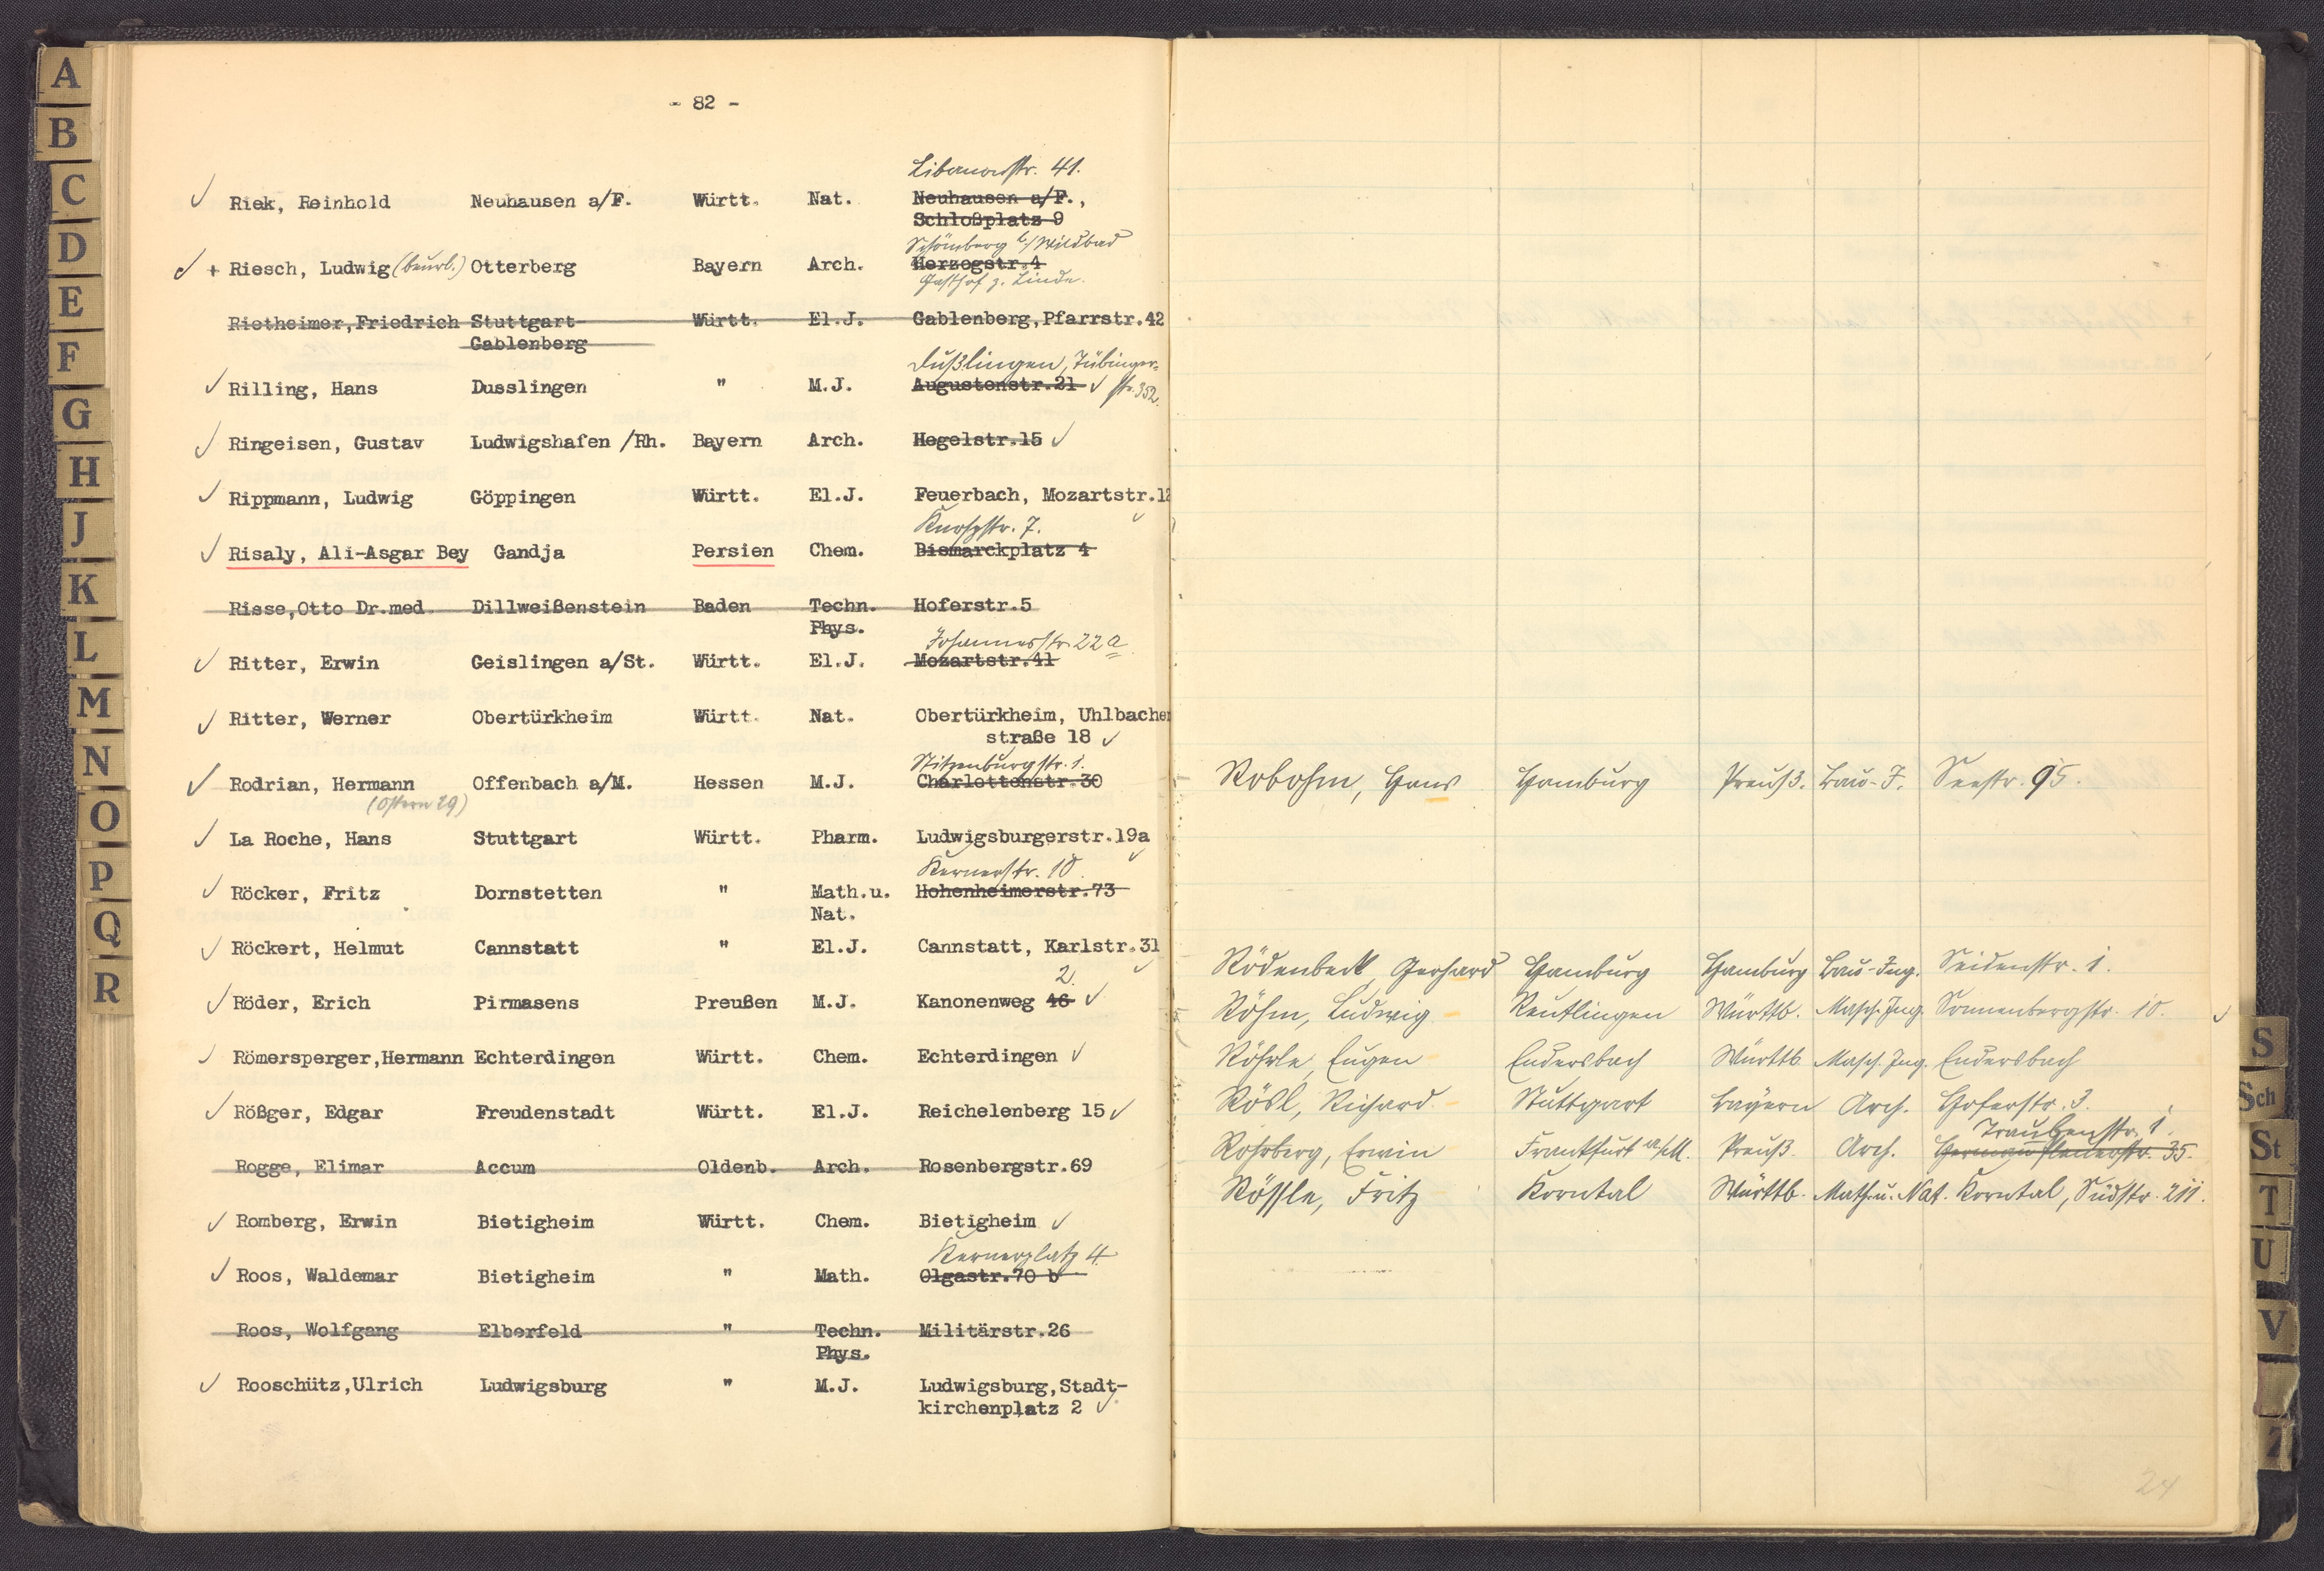 - 82 -
Libanonstr. 41.
Riek, Reinhold Neuhausen a/F. Württ. Nat. Neuhausen a/F.,
Schloßplatz 9
Schömberg b/Wildbad
+ Riesch, Ludwig (beurl.) Otterberg Bayern Arch. Herzogstr.4
Gasthof z. Linde.
Rietheimer,Friedrich Stuttgart Württ. El.J. Gablenberg,Pfarrstr.42
Gablenberg
Dußlingen, Tübinger-
Rilling, Hans Dusslingen " M.J. Augustenstr.21 str. 352.
Ringeisen, Gustav Ludwigshafen /Rh. Bayern Arch. Hegelstr.15
Rippmann, Ludwig Göppingen Württ. El.J. Feuerbach, Mozartstr.12
Knospstr. 7.
Risaly, Ali-Asgar Bey Gandja Persien Chem. Bismarckplatz 4
Risse,Otto Dr.med. Dillweißenstein Baden Techn. Hoferstr.5
Phys.
Johannesstr. 22 a
Ritter, Erwin Geislingen a/St. Württ. El.J. Mozartstr.41
Ritter, Werner Obertürkheim Württ. Nat. Obertürkheim, Uhlbacher
straße 18
Stitzenburgstr. 1.
Rodrian, Hermann Offenbach a/M. Hessen M.J. Charlottenstr.30
(Ostern 29)
La Roche, Hans Stuttgart Württ. Pharm. Ludwigsburgerstr.19a
Kernerstr. 10.
Röcker, Fritz Dornstetten " Math.u. Hohenheimerstr.73
Nat.
Röckert, Helmut Cannstatt " El.J. Cannstatt, Karlstr.31
2.
Röder, Erich Pirmasens Preußen M.J. Kanonenweg 46
Römersperger,Hermann Echterdingen Württ. Chem. Echterdingen
Rößger, Edgar Freudenstadt Württ. El.J. Reichelenberg 15
Rogge, Elimar Accum Oldenb. Arch. Rosenbergstr.69
Romberg, Erwin Bietigheim Württ. Chem. Bietigheim
Kernerplatz 4
Roos, Waldemar Bietigheim " Math. Olgastr.70 b
Roos, Wolfgang Elberfeld " Techn. Militärstr.26
Phys.
Rooschütz,Ulrich Ludwigsburg " M.J. Ludwigsburg,Stadt-
kirchenplatz 2
Robohm, Hans Hamburg Preuß. Bau-J. Seestr. 95.
Rödenbeck, Gerhard Hamburg Hamburg Bau-Ing. Seidenstr. 1.
Röhm, Ludwig Reutlingen Württb. Masch.Ing. Sonnenbergstr. 10.
Röhrle, Eugen Endersbach Württb. Masch. Ing. Endersbach
Rösl, Richard Stuttgart Bayern Arch. Hoferstr. 3.
Traubenstr. 1.
Rohrberg, Erwin Frankfurt a/M. Preuß. Arch. 35.
Rössle, Fritz Korntal Württb. Math.u. Nat. Korntal, Südstr. 211.
24
A
B
C
D
E
F
G
H
J
K
L
M
N
O
P
Q
R
S
Sch
St
T
U
V
Z